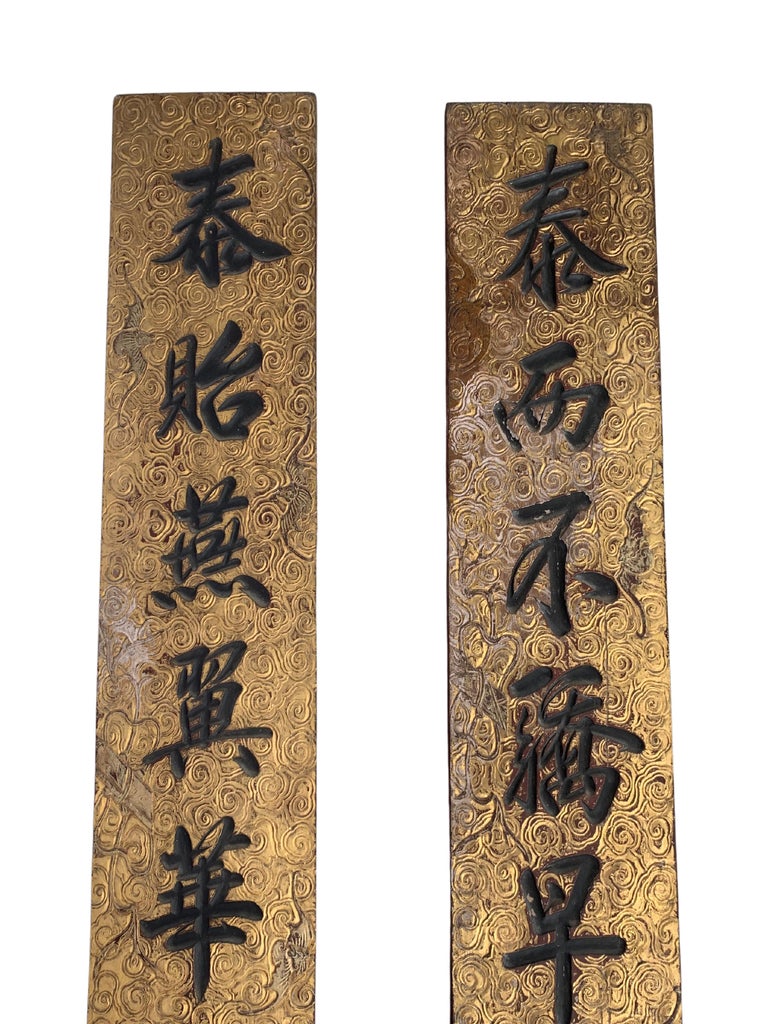 泰而不驕早
泰貽燕翼華